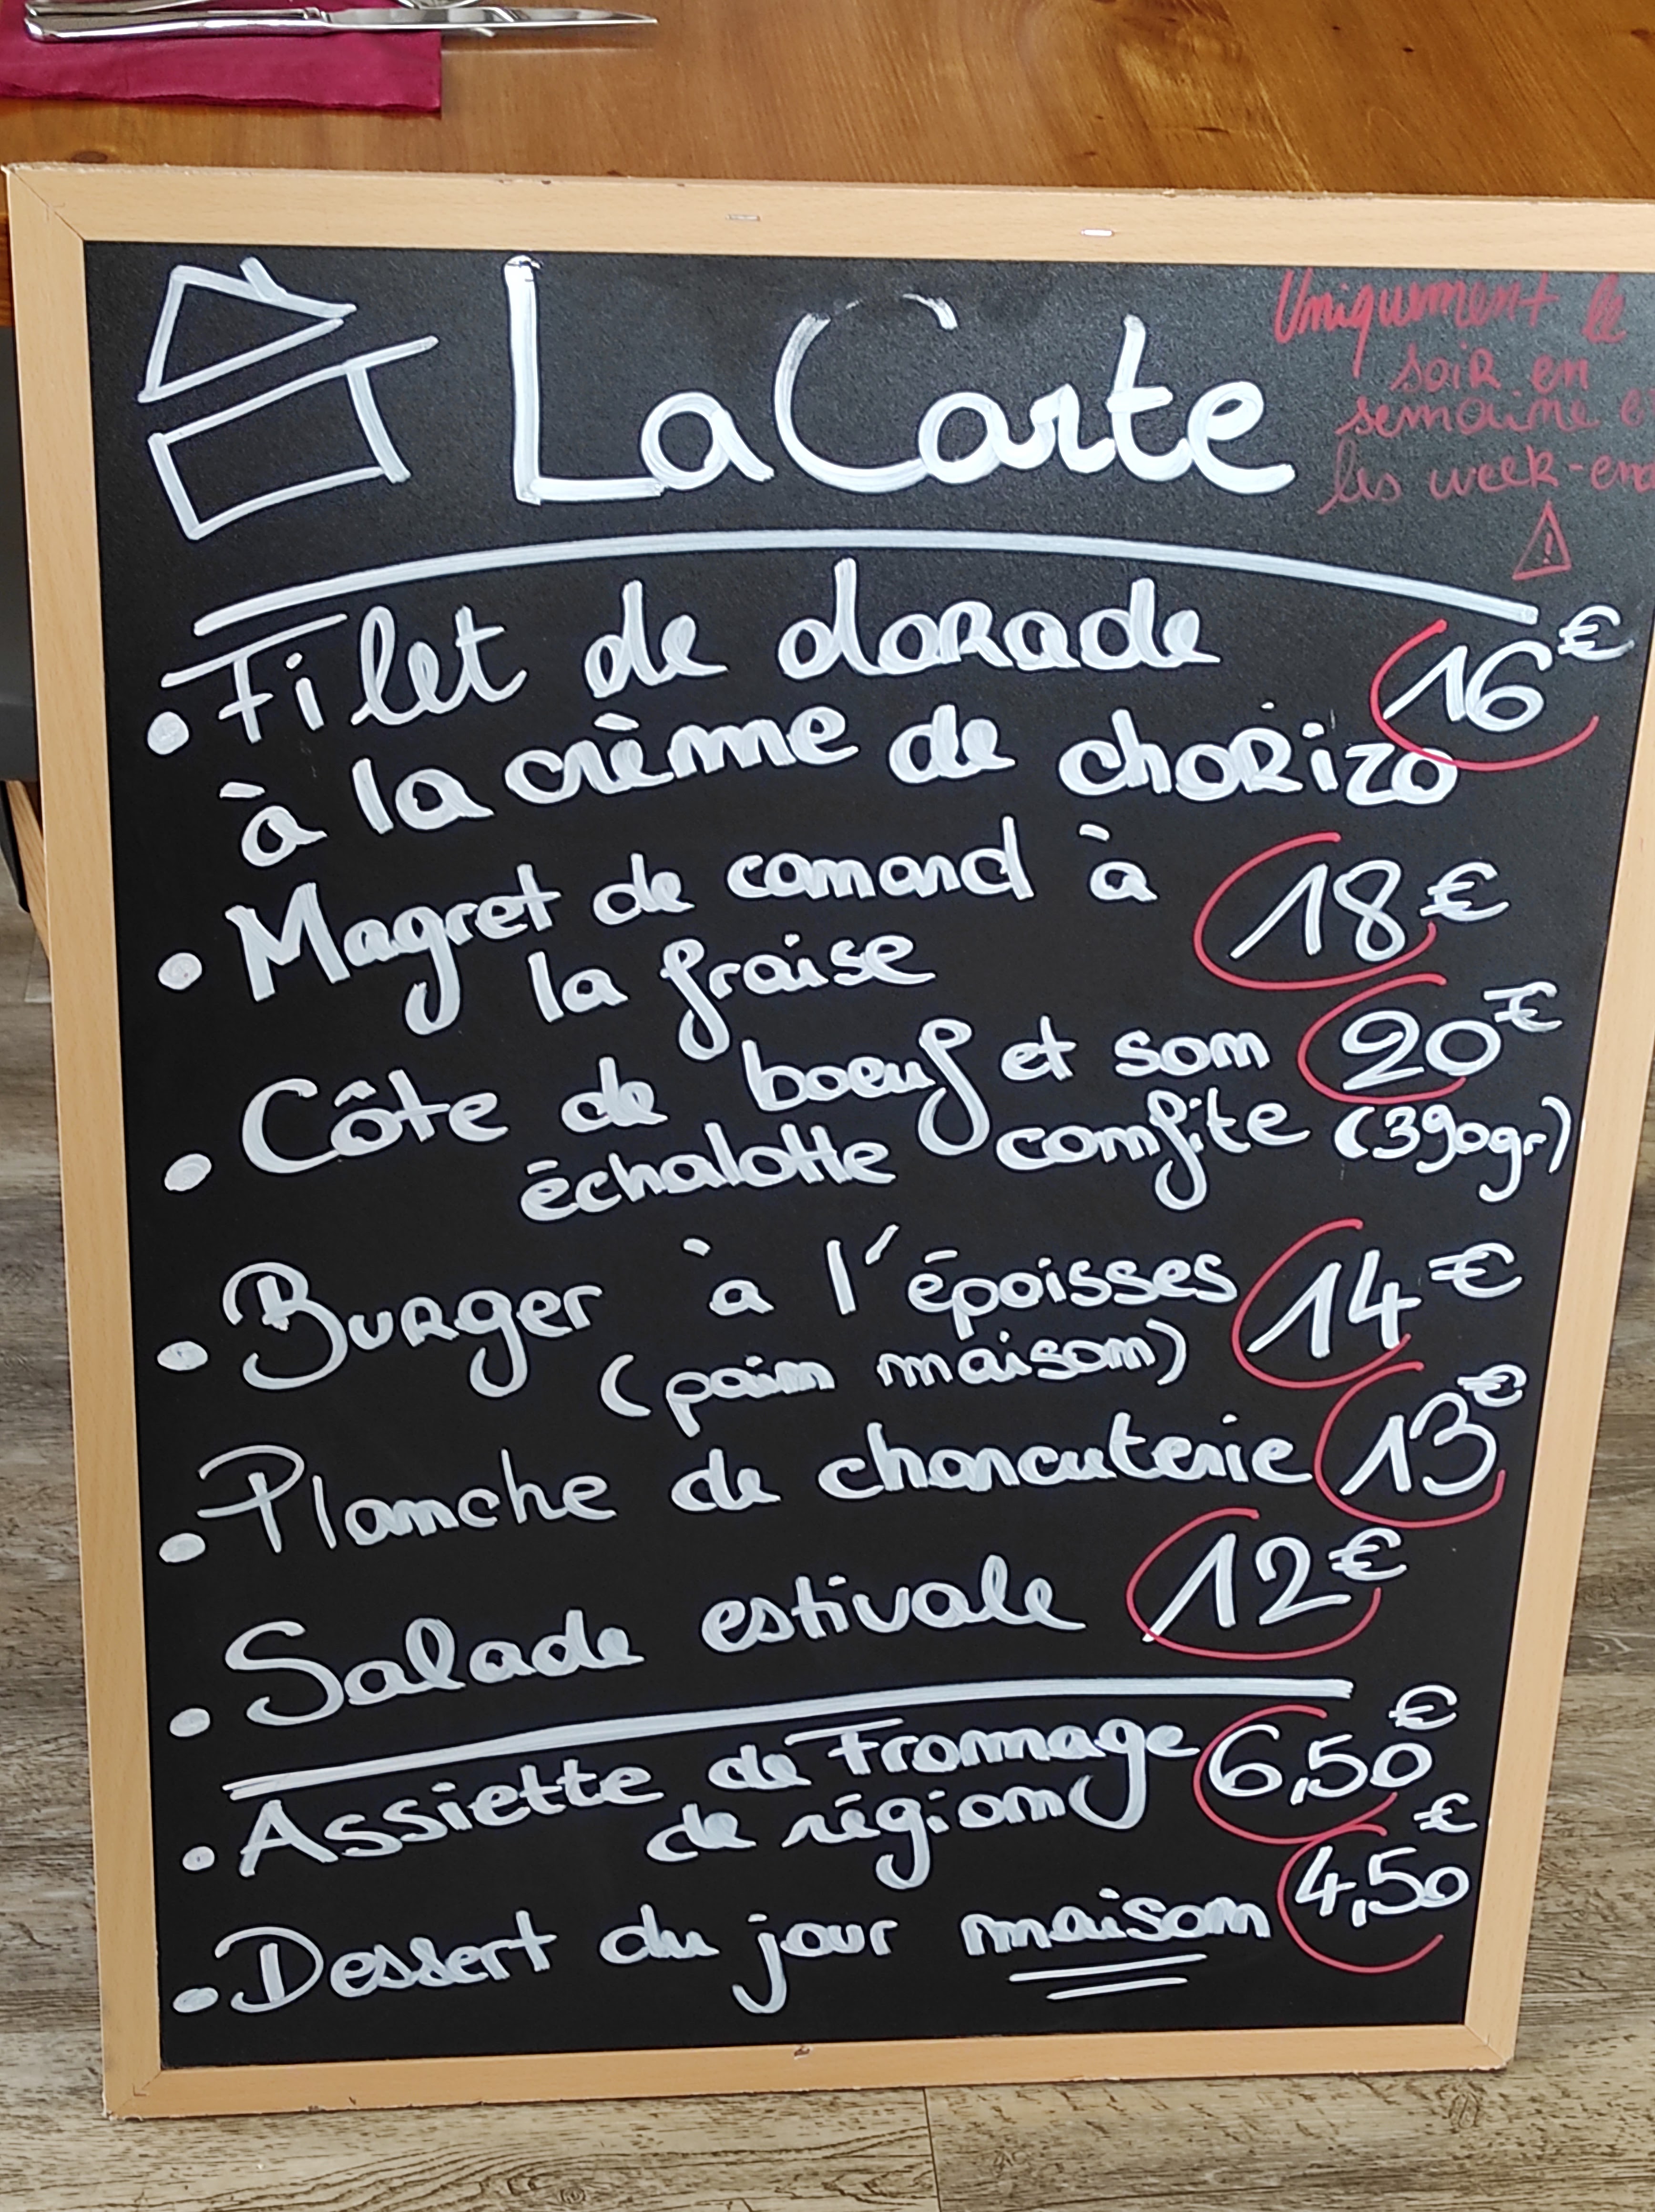 La Carte
Uniquement le
soir en
semaine et
les week-end
• Filet de dorade 16€
à la crème de chorizo
• Magret de canard à 18€
la fraise
• Côte de boeuf et son 20€
échalotte confite (390gr)
• Burger à l'époisses 14€
(pain maison)
• Planche de charcuterie 13€
• Salade estivale 12€
• Assiette de Fromage 6,50€
de région
• Dessert du jour maison 4,50€